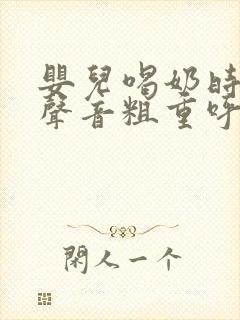 嬰兒喝奶時
聲音粗重呼
閑人一个